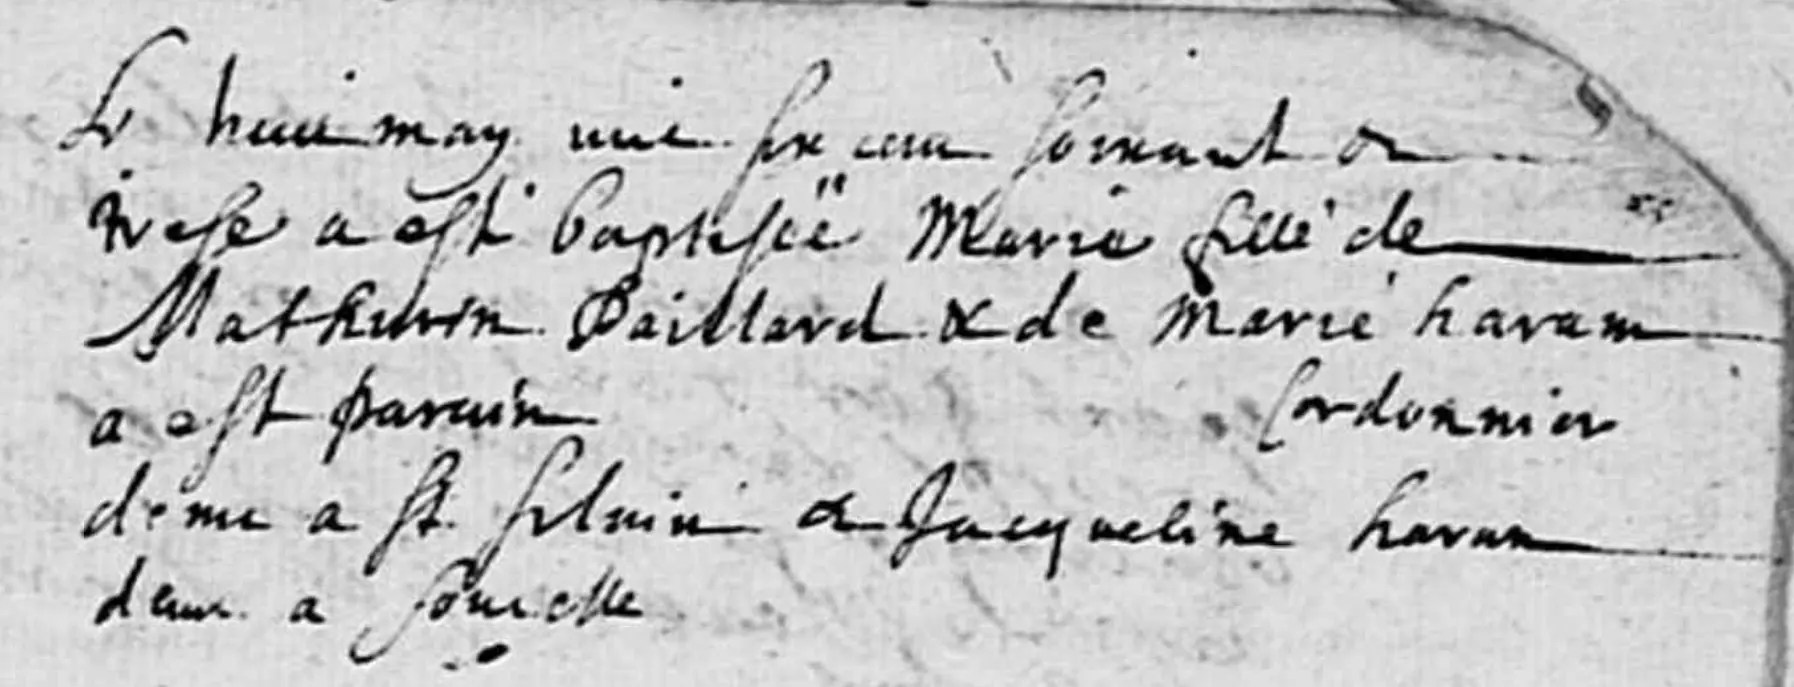 Le huit may mil six cens soixante &
trese a esté baptisëë Marie fille de
Mathurin Paillard & de Marie haram
a est parain Cordonnier
demt a St Siluin & Jacqueline haram
demt a